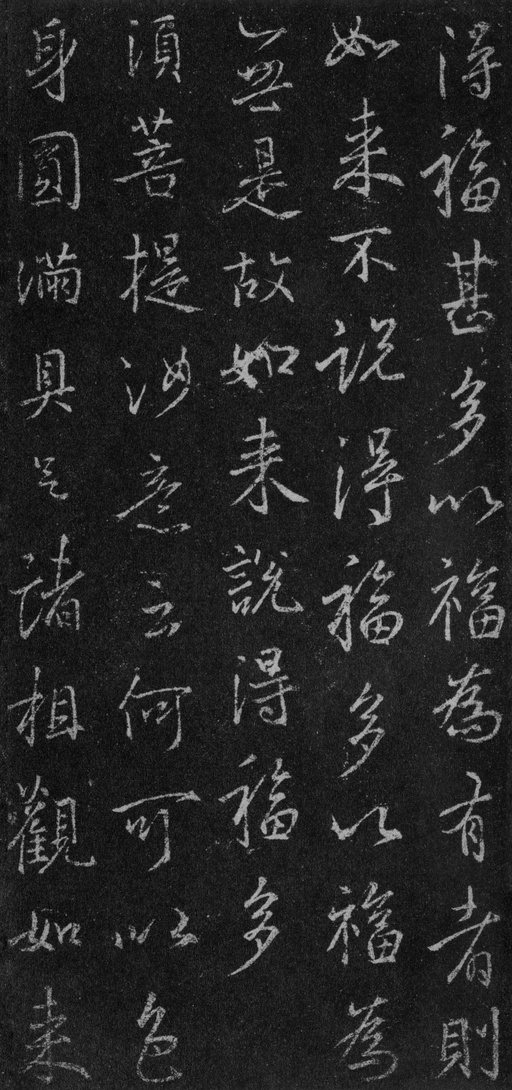 得福甚多以福為有者則
如来不説得福多以福為
無是故如来說得福多
湏菩提汝意云何可以色
身圓滿具足諸相觀如来